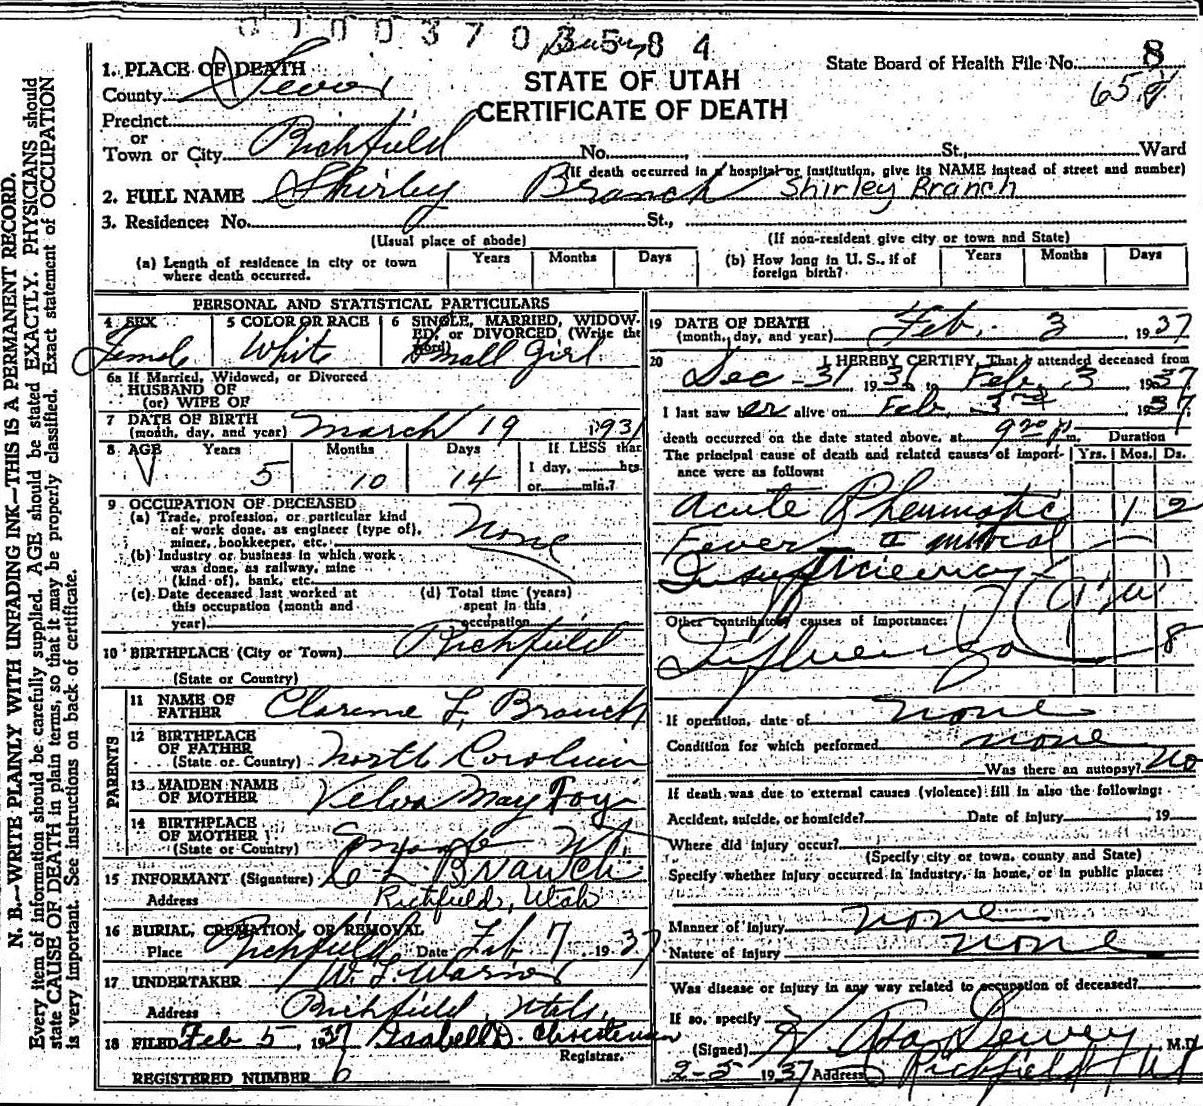 0 1 0 0 3 7 0 5 8 4
1. PLACE OF DEATH
County Sevier
STATE OF UTAH
CERTIFICATE OF DEATH
State Board of Health File No. 8
65
Precinct
or
Town or City Richfield No. St., Ward
(If death occurred in a hospital or institution, give its NAME instead of street and number)
2. FULL NAME Shirley Branch Shirley Branch
3. Residence: No. St.,
(Usual place of abode) (If non-resident give city or town and State)
(a) Length of residence in city or town where death occurred. Years Months Days (b) How long in U. S., if of foreign birth? Years Months Days
PERSONAL AND STATISTICAL PARTICULARS
4 SEX 5 COLOR OR RACE 6 SINGLE, MARRIED, WIDOWED, or DIVORCED, (Write the word)
Female White Small girl
6a If Married, Widowed, or Divorced
HUSBAND OF
(or) WIFE OF
7 DATE OF BIRTH
(month, day, and year) March 19 1931
8 AGE Years Months Days If LESS than
5 10 14 1 day, hrs.
or min.?
9 OCCUPATION OF DECEASED
(a) Trade, profession, or particular kind
of work done, as engineer (type of),
miner, bookkeeper, etc. None
(b) Industry or business in which work
was done, as railway, mine
(kind of), bank, etc.
(c) Date deceased last worked at
this occupation (month and
year)
(d) Total time (years)
spent in this
occupation
10 BIRTHPLACE (City or Town) Richfield
(State or Country)
PARENTS
11 NAME OF
FATHER Clarence L. Branch
12 BIRTHPLACE
OF FATHER
(State or Country) North Carolina
13 MAIDEN NAME
OF MOTHER Velva May Foy
14 BIRTHPLACE
OF MOTHER
(State or Country)
15 INFORMANT (Signature) C L Branch
Address Richfield, Utah
16 BURIAL, CREMATION, OR REMOVAL
Place Richfield Date Feb 7 1937
17 UNDERTAKER
Address Richfield, Utah.
18 FILED Feb 5, 1937 Isabell D. Christensen
Registrar.
REGISTERED NUMBER 6
19 DATE OF DEATH
(month, day, and year) Feb. 3 1937
20 I HEREBY CERTIFY, That I attended deceased from
Dec - 31 1936 to Feb. 3 1937
I last saw her alive on Feb. 3rd 1937
death occurred on the date stated above, at 9 20 p m. Duration
The principal cause of death and related causes of importance were as follows: Yrs. Mos. Ds.
Acute Rheumatic 1 2
Fever mitral
Insufficiency
Other contributory causes of importance:
Influenza 8
If operation, date of none
Condition for which performed none
Was there an autopsy? No
If death was due to external causes (violence) fill in also the following:
Accident, suicide, or homicide? Date of injury , 19
Where did injury occur?
(Specify city or town, county and State)
Specify whether injury occurred in industry, in home, or in public place:
Manner of injury none
Nature of injury none
Was disease or injury in any way related to occupation of deceased?
If so, specify
(Signed) H. Asa Dewey M.D.
2-5 1937 Address Richfield, Ut
N. B.—WRITE PLAINLY WITH UNFADING INK—THIS IS A PERMANENT RECORD.
Every item of information should be carefully supplied. AGE should be stated EXACTLY. PHYSICIANS should
state CAUSE OF DEATH in plain terms, so that it may be properly classified. Exact statement of OCCUPATION
is very important. See instructions on back of certificate.